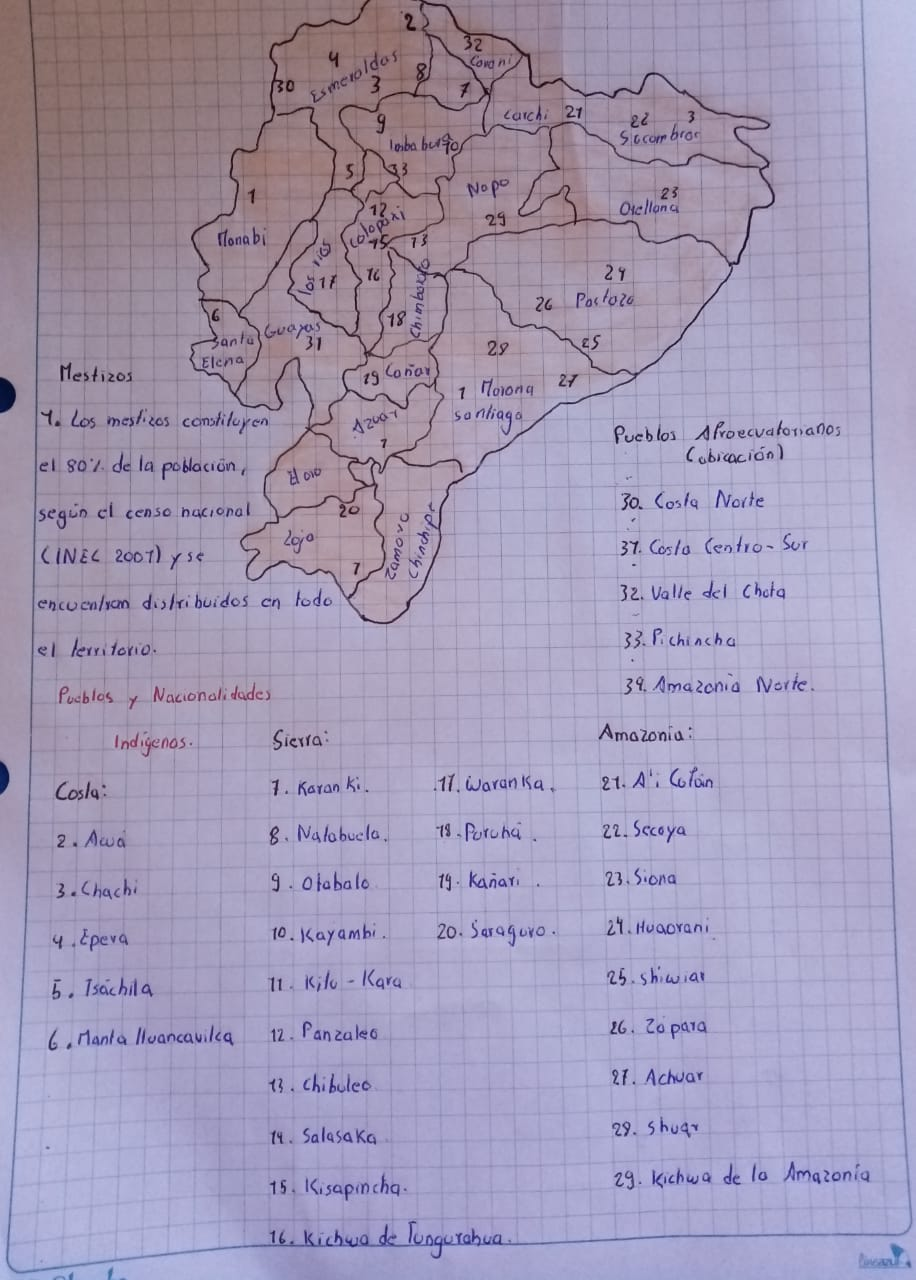 2
32
4
Esmeraldas
Covani
30
3
8
7
9
Carchi
21
22
3
Sucumbios
Imbabura
10
5
33
Napo
23
Orellana
1
12
Cotopaxi
29
Manabi
15
13
los rios
17
16
24
26
Pastaza
Chimborazo
6
18
Santa
Elena
Guayas
31
28
25
19
Cañar
27
1
Morona
santiago
Azuay
1
El oro
20
Loja
1
Zamora
Chinchipe
Mestizos
1. Los mestizos constituyen
el 80% de la población,
según el censo nacional
(INEC 2001) y se
encuentran distribuidos en todo
el territorio.
Pueblos Afroecuatorianos
(ubicación)
30. Costa Norte
31. Costa Centro-Sur
32. Valle del Chota
33. Pichincha
34. Amazonia Norte.
Pueblos y Nacionalidades
Indígenas.
Costa:
2. Awá
3. Chachi
4. Epera
5. Tsáchila
6. Manta Huancavilca
Sierra:
7. Karanki.
8. Natabuela.
9. Otabalo
10. Kayambi.
11. Kitu-Kara
12. Panzaleo
13. Chibuleo
14. Salasaka
15. Kisapincha.
16. Kichwa de Tungurahua.
17. Waranka.
18. Puruhá.
19. Kañari.
20. Saraguro.
Amazonia:
21. A'i Cofán
22. Secoya
23. Siona
24. Huaorani
25. Shiwiar
26. Zápara
27. Achuar
28. Shuar
29. Kichwa de la Amazonía